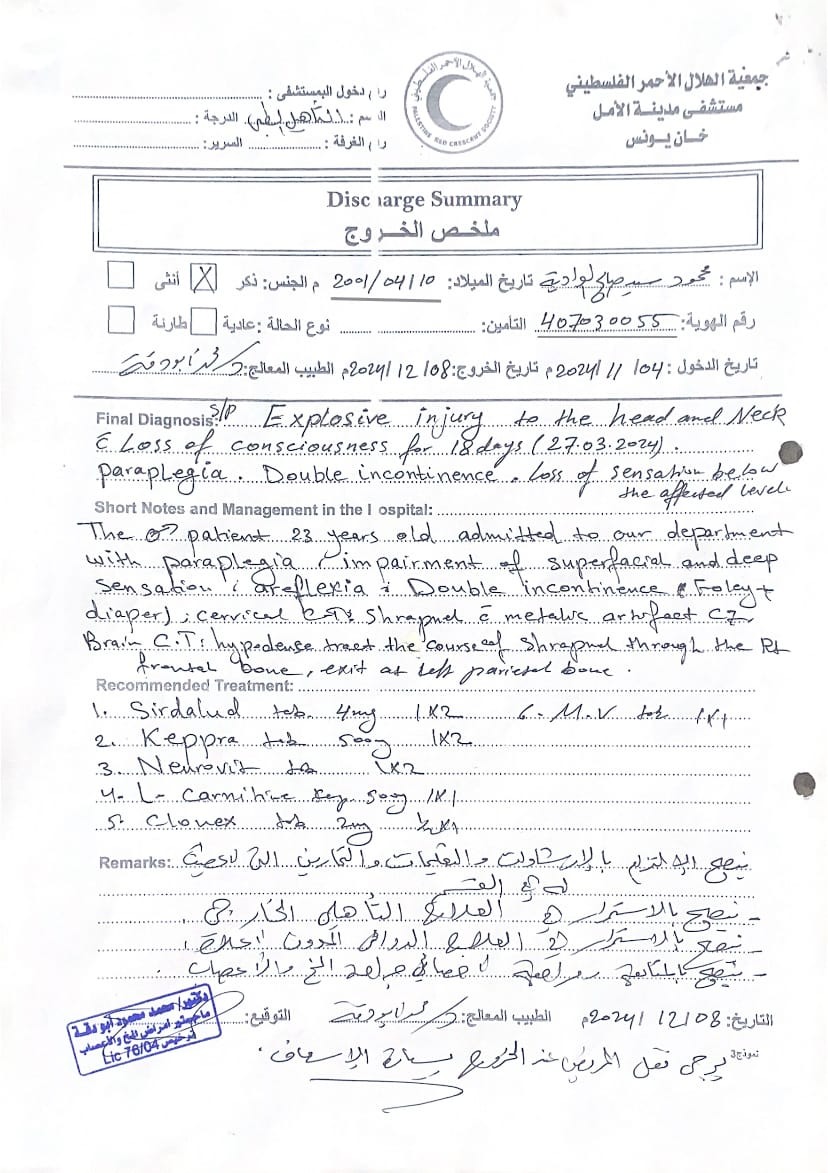 جمعية الهلال الأحمر الفلسطيني
مستشفى مدينة الأمل
خان يونس
PALESTINE RED CRESCENT SOCIETY
دخول المستشفى :
التأهيل الطبي الدرجة :
الغرفة : السرير:
Discharge Summary
ملخص الخروج
الإسم : محمود سعيد تاريخ الميلاد: 2001/04/10 م الجنس: ذكر X أنثى
رقم الهوية: 407030055 التأمين: نوع الحالة : عادية طارئة
تاريخ الدخول : 2024/11/04م تاريخ الخروج: 2024/12/08م الطبيب المعالج: د. محمد أبو دقة
Final Diagnosis: S/P Explosive injury to the head and Neck
c̄ Loss of consciousness for 18 days (27.03.2024).
paraplegia. Double incontinence. Loss of sensation below
the affected level.
Short Notes and Management in the Hospital:
The patient 23 years old admitted to our department
with paraplegia, impairment of superfacial and deep
sensation; areflexia; Double incontinence (Foley +
diaper); cervical C.T: Shrapnel c̄ metalic artefact C7,
Brain C.T: hypodense tract the course of Shrapnel through the Rt
frontal bone, exit at left parietal bone.
Recommended Treatment:
1. Sirdalud tab. 4mg 1X2 6. M.V tab 1X1
2. Keppra tab 500g 1X2
3. Neurovit tab 1X2
4- L-Carnitine 500g 1X1
5. Clonex tab 2mg ½X1
Remarks: ينصح الالتزام بالإرشادات والتعليمات والتمارين
القسم
- ننصح بالاستمرار في العلاج التأهيلي الخارجي.
- ننصح بالاستمرار في العلاج الدوائي المدون أعلاه.
- ننصح بالمتابعة ومراجعة أخصائي جراحة المخ والأعصاب.
التاريخ: 2024/12/08م الطبيب المعالج: د. محمد أبو دقة التوقيع:
دكتور/ محمد محمود أبو دقة
ماجستير امراض المخ والأعصاب
ترخيص Lic 76/04
نموذج3
يرجى نقل المريض عند الخروج بسيارة الإسعاف.